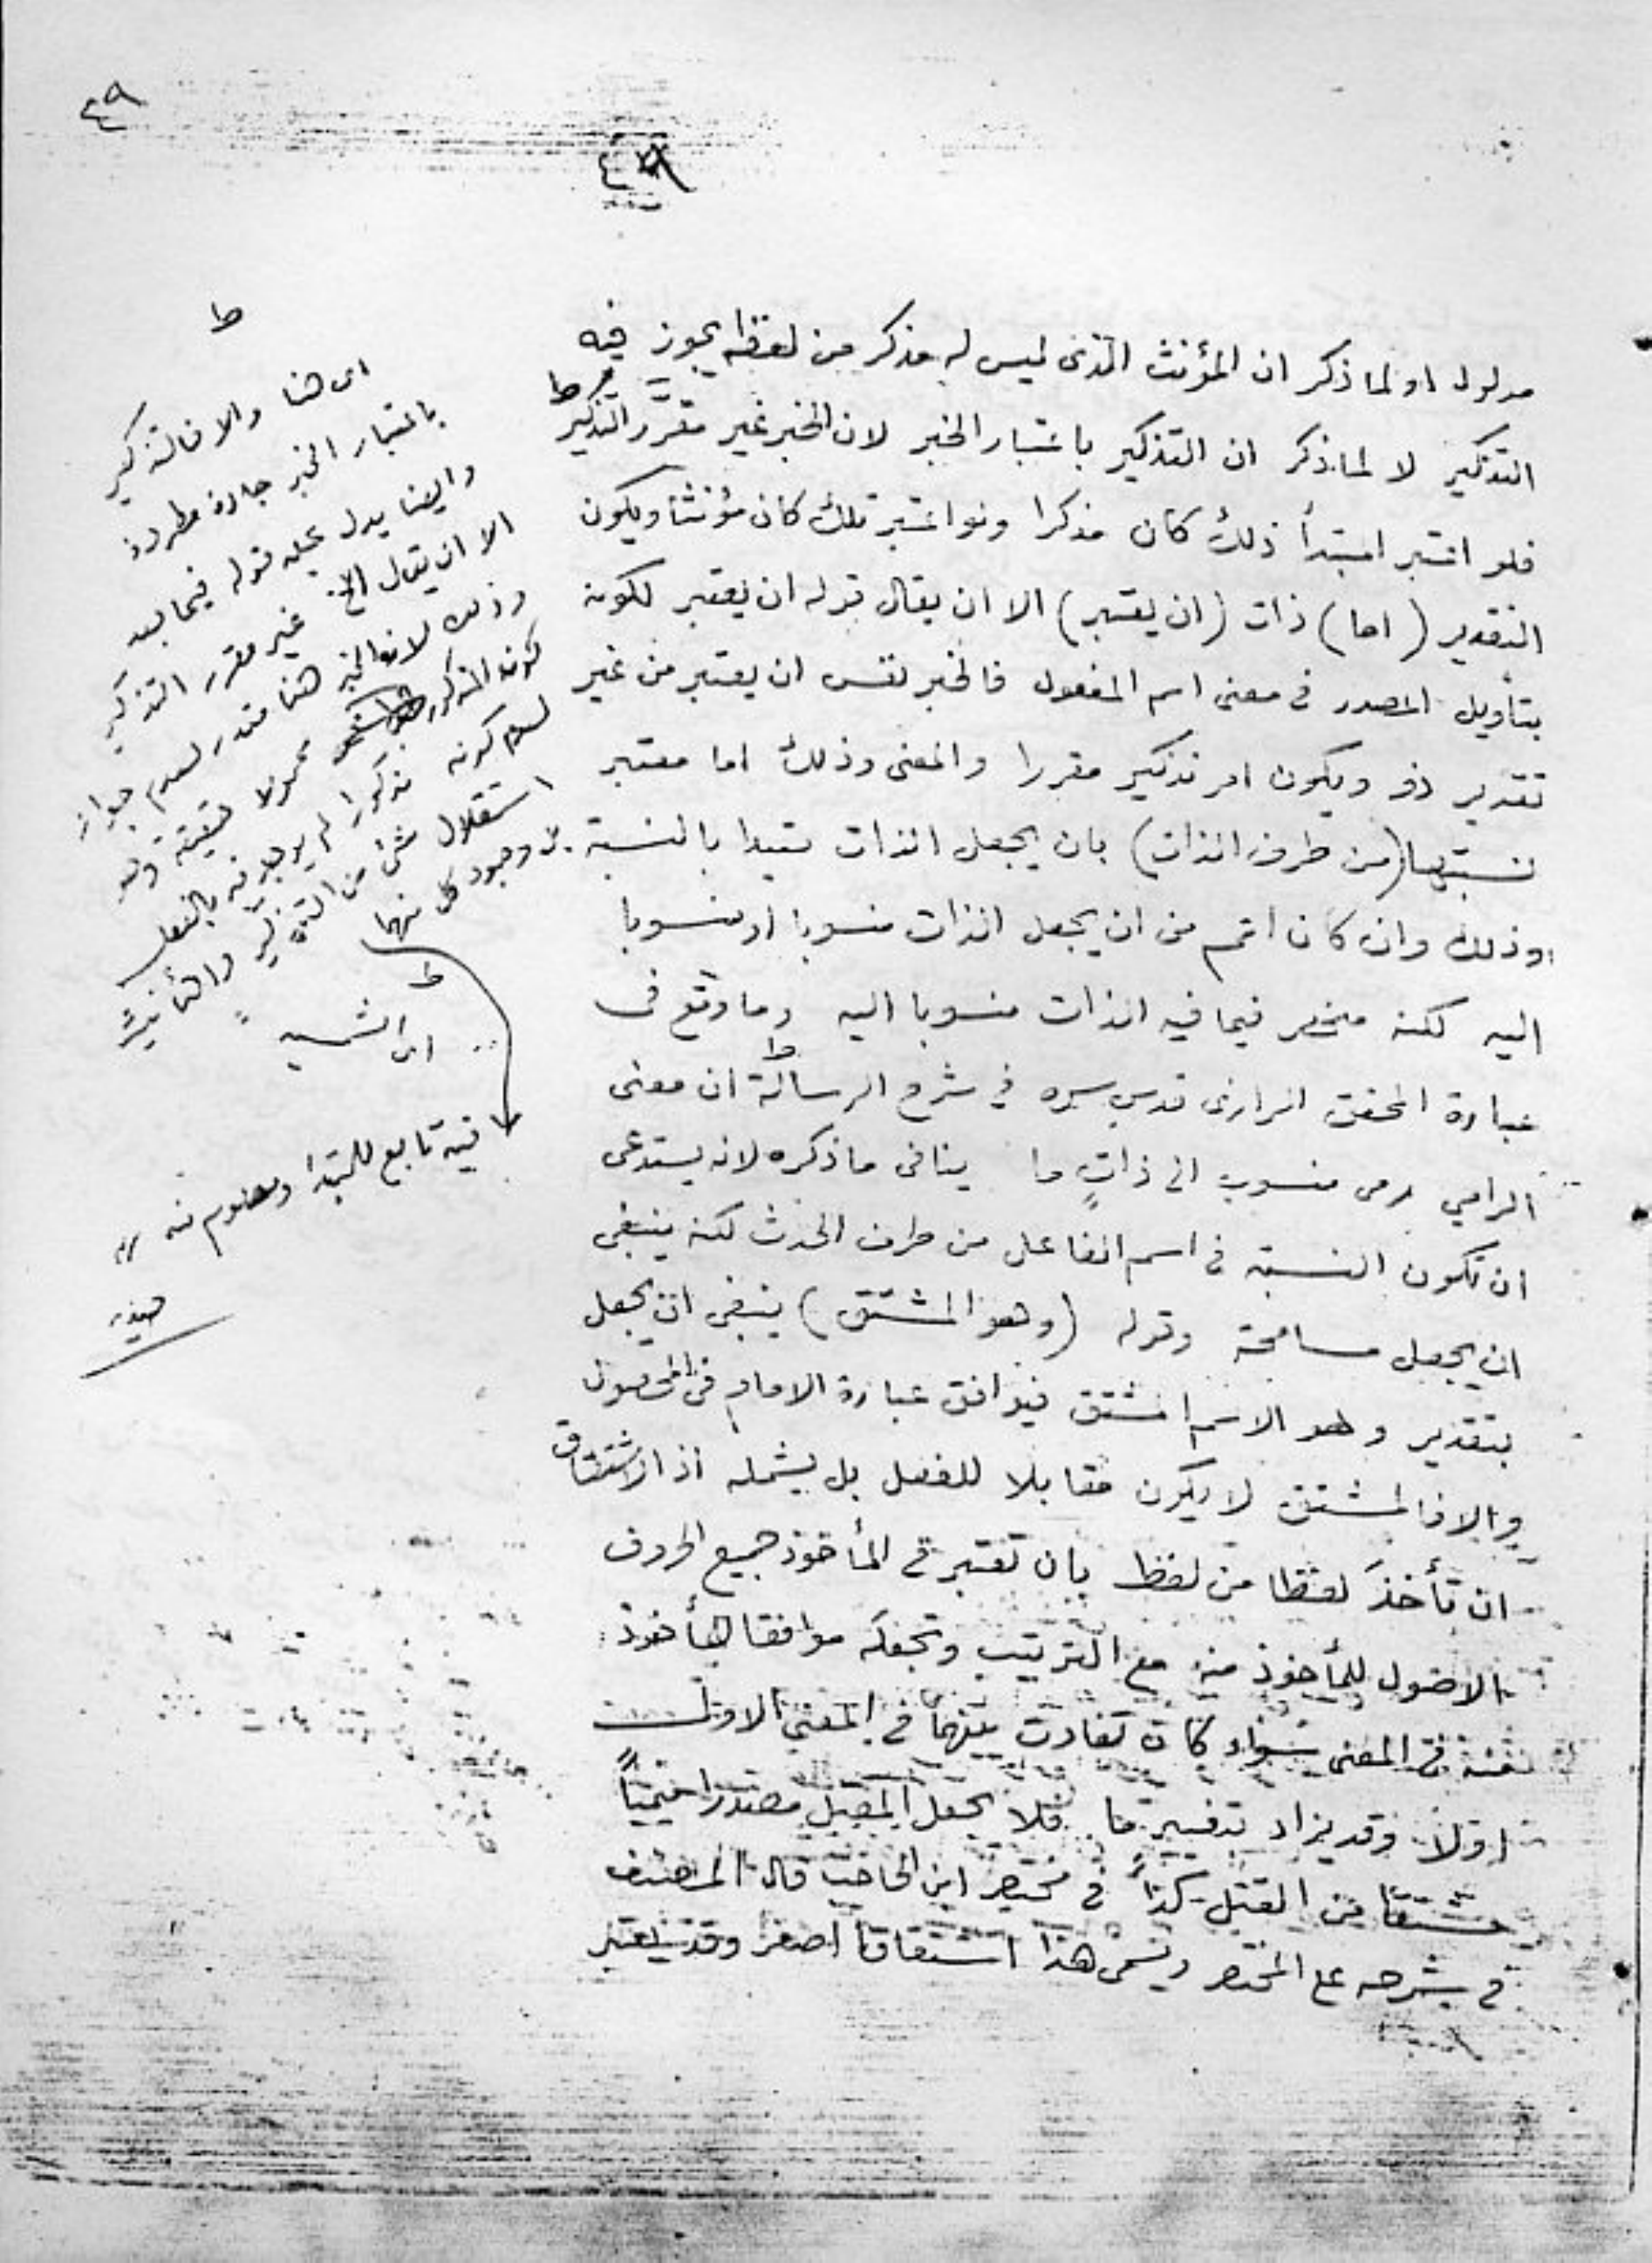 ٤٩
مدلول او لما ذكر ان المؤنث الذى ليس له مذكر من لفظه يجوز فيه
التذكير لا لما ذكر ان التذكير باعتبار الخبر لان الخبر غير مقرّر التذكير ط
فلو اعتبر المبتدأ ذلك كان مذكرا ولو اعتبر تلك كان مؤنثا ويكون
التقدير (اما) ذات (ان يعتبر) الا ان يقال قوله ان يعتبر لكونه
بتأويل المصدر فى معنى اسم المفعول فالخبر نفس ان يعتبر من غير
تقدير ذو ويكون امر تذكير مقررا والمعنى وذلك اما معتبر
نسبتها (من طرف الذات) بان يجعل الذات مقيدا بالنسبة
وذلك وان كان اعم من ان يجعل الذات منسوبا او منسوبا
اليه لكنه منحصر فيما فيه الذات منسوبا اليه وما وقع فى
عبارة المحقق الرازى قدس سره فى شرح الرسالة ط ان معنى
الرامي رمى منسوب الى ذاتٍ ما ينافى ما ذكره لانه يستدعى
ان تكون النسبة فى اسم الفاعل من طرف الحدث لكنه ينبغى
ان يجعل مسامحة وقوله (وهو المشتق) ينبغى ان يجعل
بتقدير وهو الاسم المشتق فيوافق عبارة الامام فى المحصول
والا فالمشتق لا يكون مقابلا للفعل بل يشمله اذ الاشتقاق
ان تأخذَ لفظا من لفظ بان تعتبر فى المأخوذ جميع الحروف
الاصول للمأخوذ منه مع الترتيب وتجعله موافقا للمأخوذ
منه فى المعنى سواء كان تفاوت بينهما فى المعنى
اولا وقد يزاد تغيير ما فلا يجعل المقتل مصدرا ميميّاً
مشتقا من القتل كذا فى مختصر ابن الحاجب قال المصنف
فى شرحه على المختصر ويسمى هذا اشتقاقا اصغر وقد يعتبر
ط
اى هنا والا فالتذكير
باعتبار الخبر جادة مطردة
وايضا يدل عليه قوله فيما بعد
الا ان يقال الخ غير مقرر التذكير
وذلك لان الخبر هنا مقدر لعدم جواز
كون المذكور محمولا حقيقة وهو
لعدم كونه مذكورا لم يوجد فيه بالفعل
استقلال شئ من التذكير والتأنيث
بل وجود كل منهما
فيه تابع للمبتدا ومعلوم منه
ط
اى الشمسيه